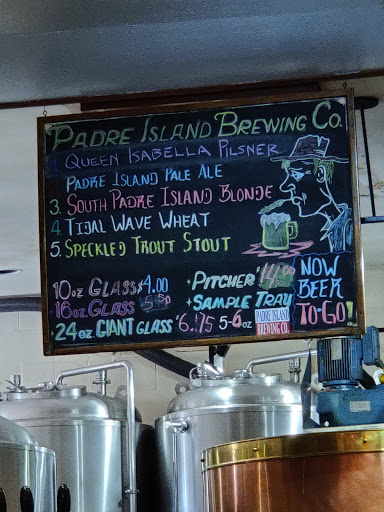 PADRE ISLAND BREWING CO.
QUEEN ISABELLA PILSNER
PADRE ISLAND PALE ALE
3. SOUTH PADRE ISLAND BLONDE
4. TIDAL WAVE WHEAT
5. SPECKLED TROUT STOUT
10 oz GLASS $4.00
16 oz. GLASS 5.50
24 oz. GIANT GLASS $6.75
• PITCHER 14.00
• SAMPLE TRAY
5-6 oz.
PADRE ISLAND
BREWING CO.
NOW
BEER
TO-GO!